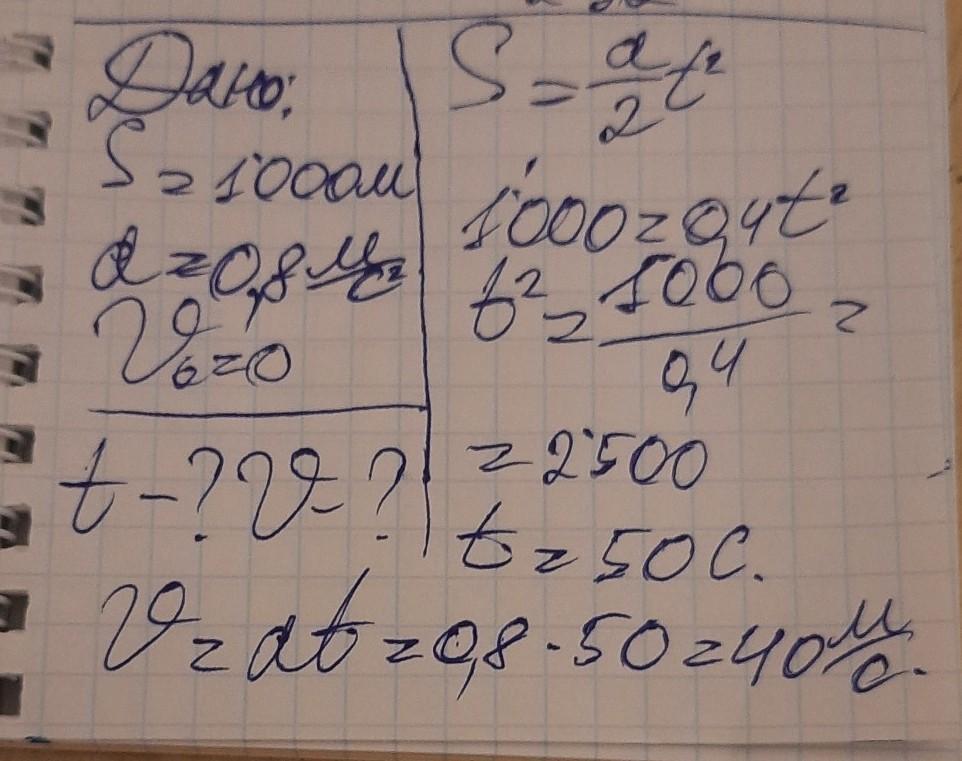 Дано:
S = 1000м
a = 0,8 м/с²
V₀ = 0
t - ? V - ?
S = a/2 t²
1000 = 0,4t²
t² = 1000/0,4 =
= 2500
t = 50 с.
V = at = 0,8 · 50 = 40 м/с.